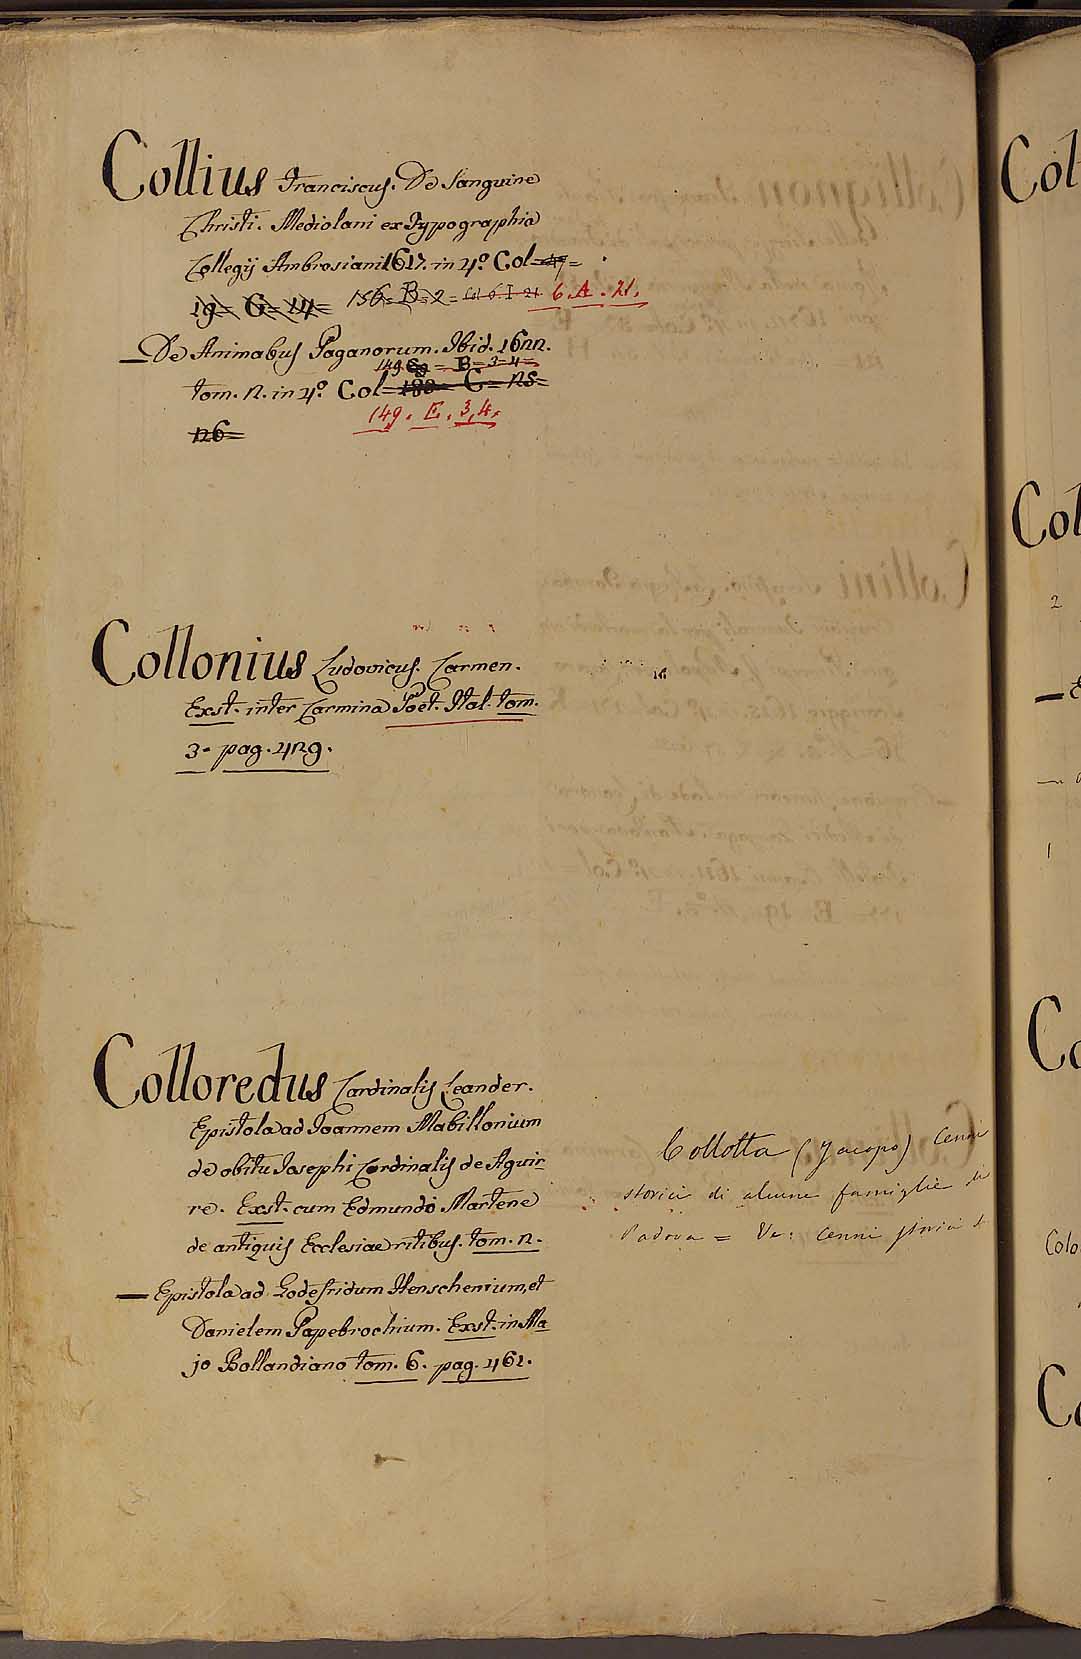 Collius Franciscus. De Sanguine
Christi. Mediolani ex Typographia
Collegij Ambrosiani 1617. in 4.º Col=
19= G= 14= 156= B= 2= Col 6. I. 21 6. A. 21.
— De Animabus Paganorum. Ibid. 1622.
149 = B= 3= 4=
tom. 2. in 4.º Col= 188= C= 25=
149. E. 3,4.
26=
Collonius Ludovicus. Carmen.
Exst. inter Carmina Poet. Ital. tom.
3. pag. 429.
Colloredus Cardinalis Leander.
Epistola ad Joannem Mabillonium
de obitu Josephi Cardinalis de Aguir
re. Exst. cum Edmundo Martene
de antiquis Ecclesiae ritibus. tom. 2.
— Epistola ad Godefridum Henschenium, et
Danielem Papebrochium. Exst. in Ma
jo Bollandiano tom. 6. pag. 461.
Collotta (Jacopo) Cenni
storici di alcune famiglie di
Padova = Ve: Cenni storici
Col
Col
2
Co
Colo
Co